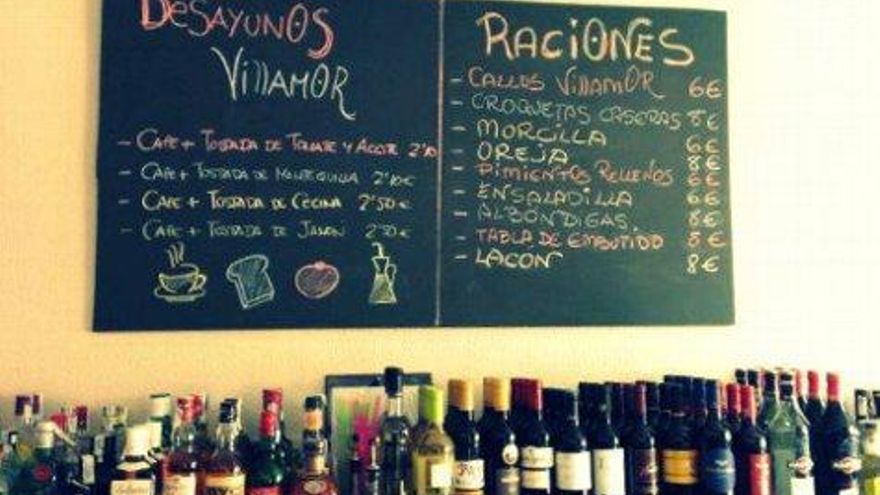 DESAYUNOS
VillAMOR
- CAFE + TOSTADA DE TOMATE Y ACEITE 2'10
- CAFE + TOSTADA DE MANTEQUILLA 2'10€
- CAFE + TOSTADA DE CECINA 2'50€
- CAFE + TOSTADA DE JAMON 2'50€
RACIONES
- CALLOS VillAMOR 6€
- CROQUETAS CASERAS 8€
- MORCILLA 6€
- OREJA 8€
- PIMIENTOS RELLENOS 6€
- ENSALADILLA 6€
- ALBONDIGAS. 8€
- TABLA DE EMBUTIDO 8€
- LACON 8€